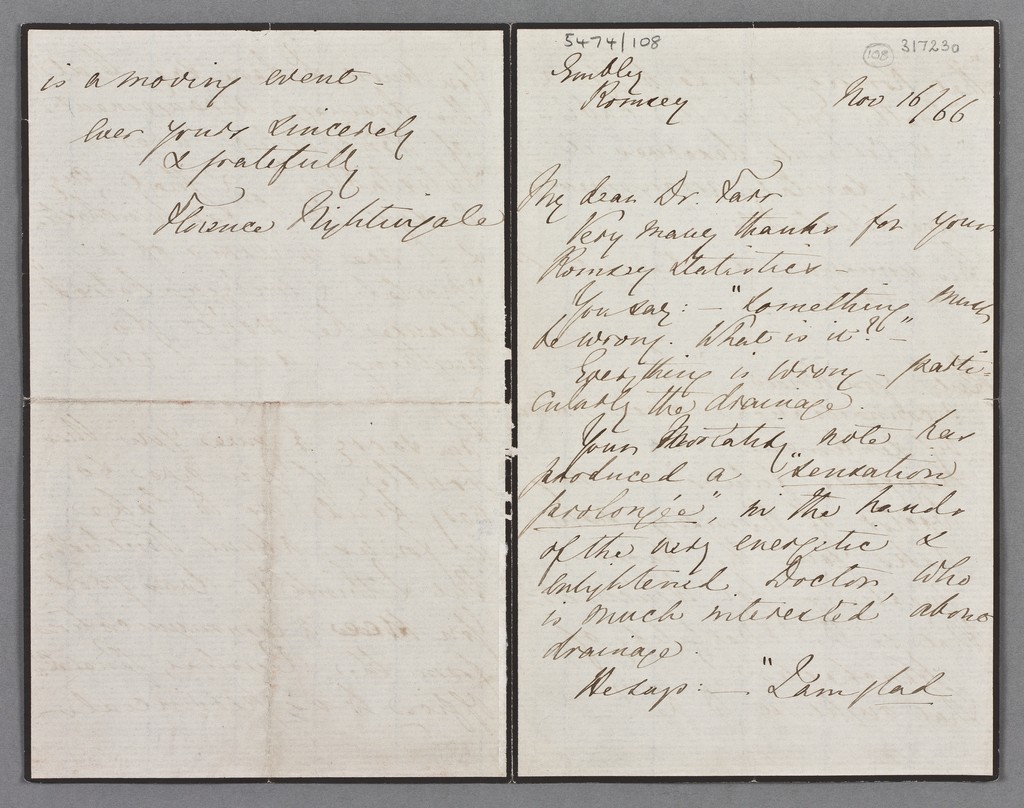 is a moving event –
ever yours sincerely
& gratefully
Florence Nightingale
5474/108
108
317230
Embley
Romsey
Nov 16/66
My dear Dr. Farr
Very many thanks for your
Romsey Statistics –
You say: – "Something must
be wrong. What is it?" –
Everything is wrong – parti-
cularly the drainage.
Your Mortality note has
produced a "sensation
prolongée", in the hands
of the very energetic &
enlightened Doctor, who
is much interested about
drainage.
He says: – "I am glad